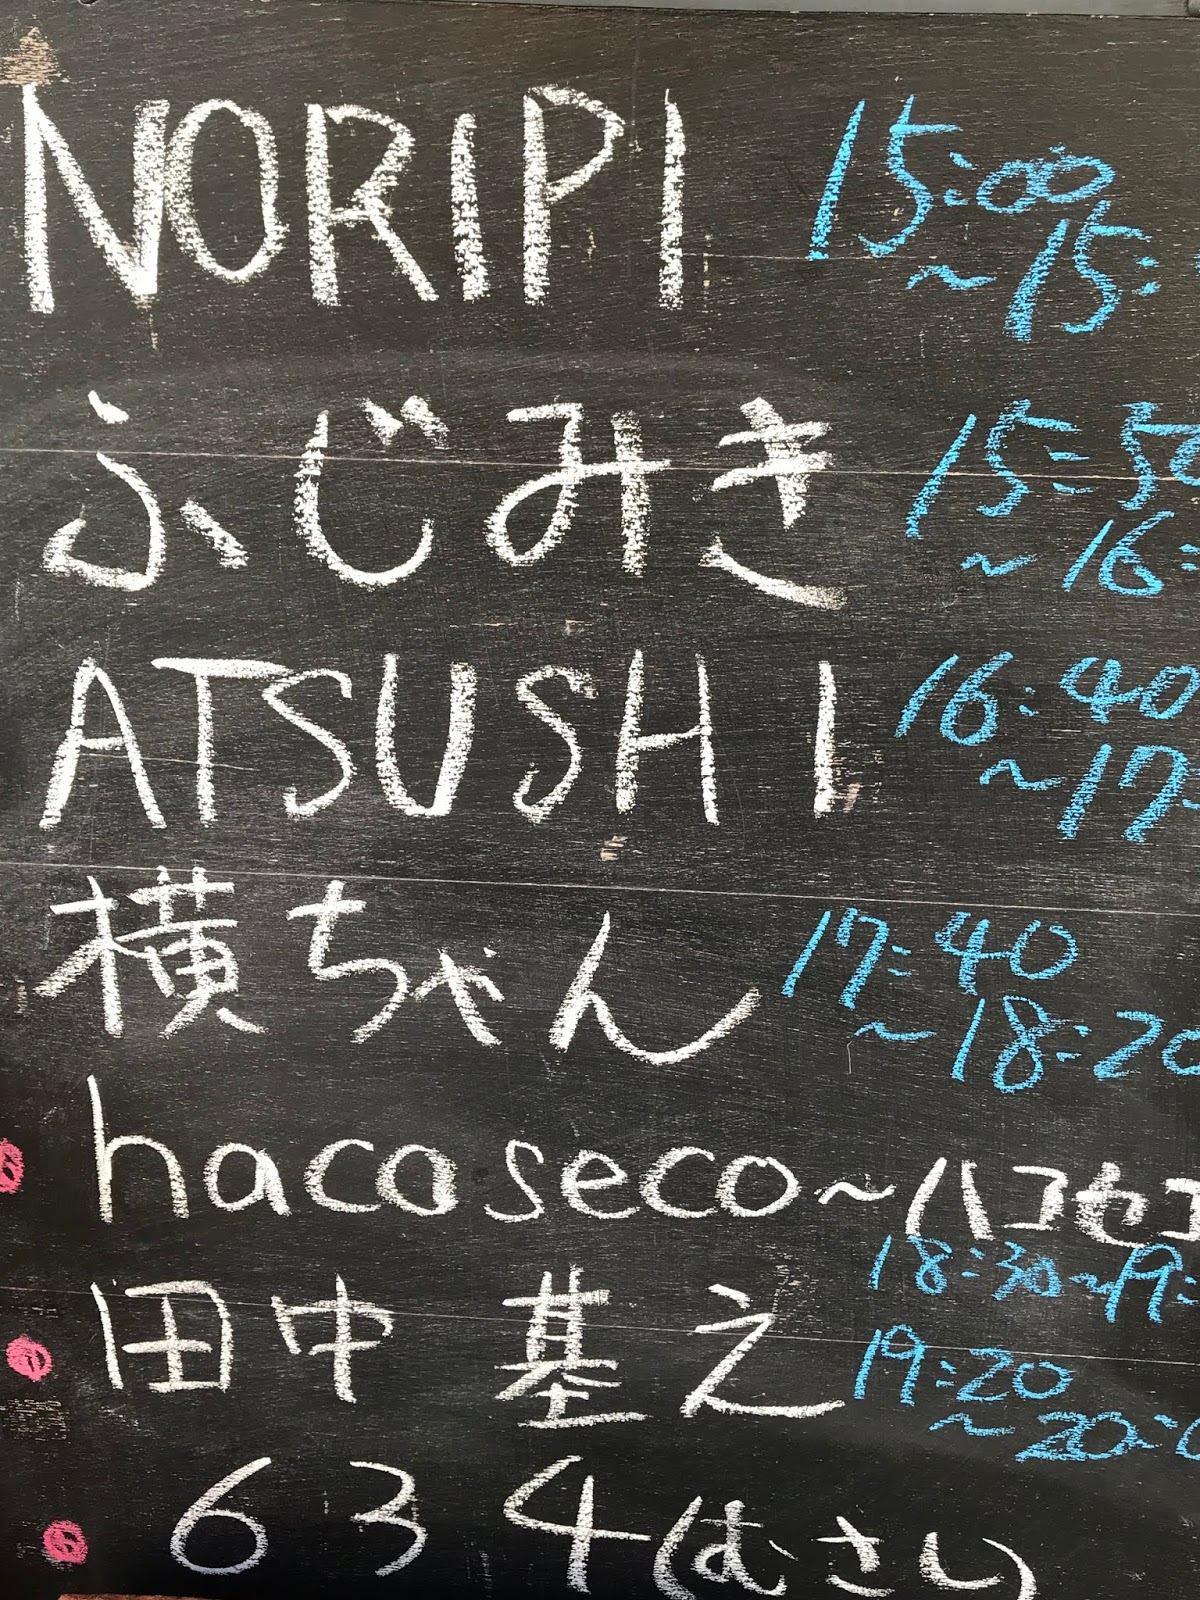 NORIPI 15:00
~15:
ふじみき 15:50
~16:
ATSUSHI 16:40
~17:
横ちゃん 17:40
~18:20
hacoseco~ハコセコ
18:30~19:
田中 基之 19:20
~20:0
634(むさし)